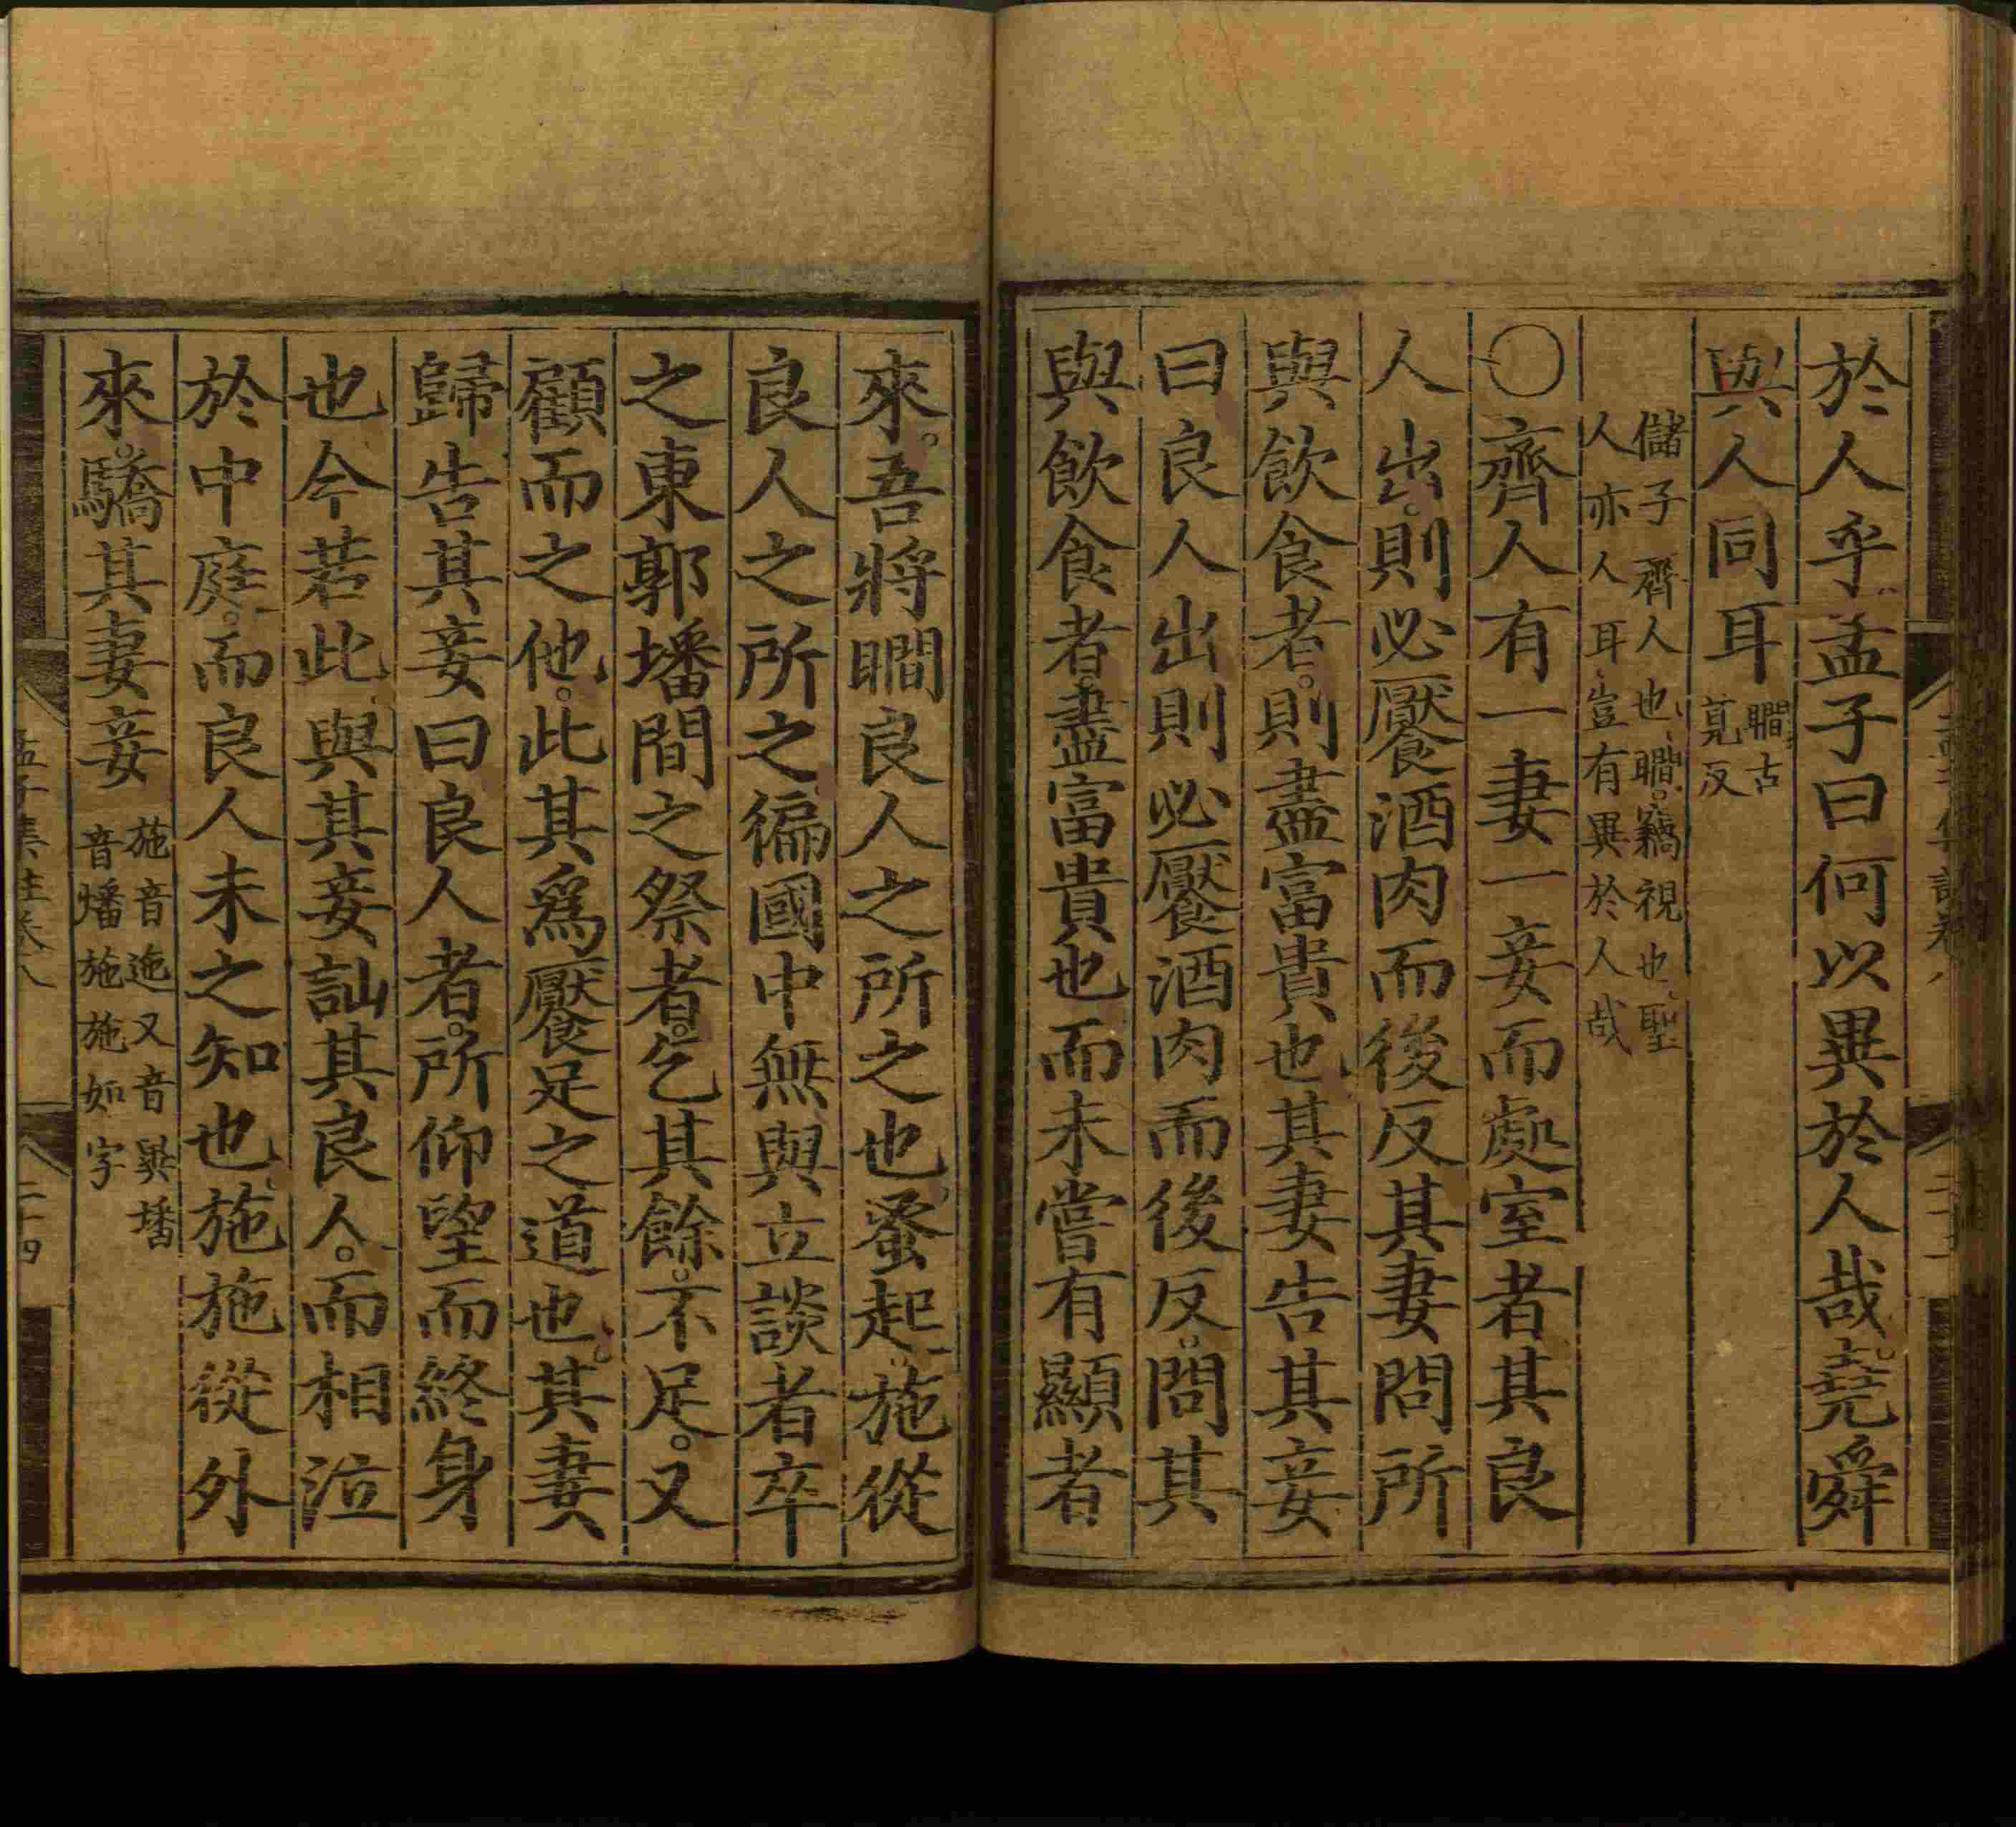 於人乎孟子曰何以異於人哉堯舜
與人同耳
瞯古
莧反
儲子齊人也瞯竊視也聖
人亦人耳豈有異於人哉
○齊人有一妻一妾而處室者其良
人出則必饜酒肉而後反其妻問所
與飲食者則盡富貴也其妻告其妾
曰良人出則必饜酒肉而後反問其
與飲食者盡富貴也而未嘗有顯者
來吾將瞯良人之所之也蚤起施從
良人之所之徧國中無與立談者卒
之東郭墦間之祭者乞其餘不足又
顧而之他此其爲饜足之道也其妻
歸告其妾曰良人者所仰望而終身
也今若此與其妾訕其良人而相泣
於中庭而良人未之知也施施從外
來驕其妻妾
施音迤又音異墦
音燔施施如字
孟子集註卷八
二十四